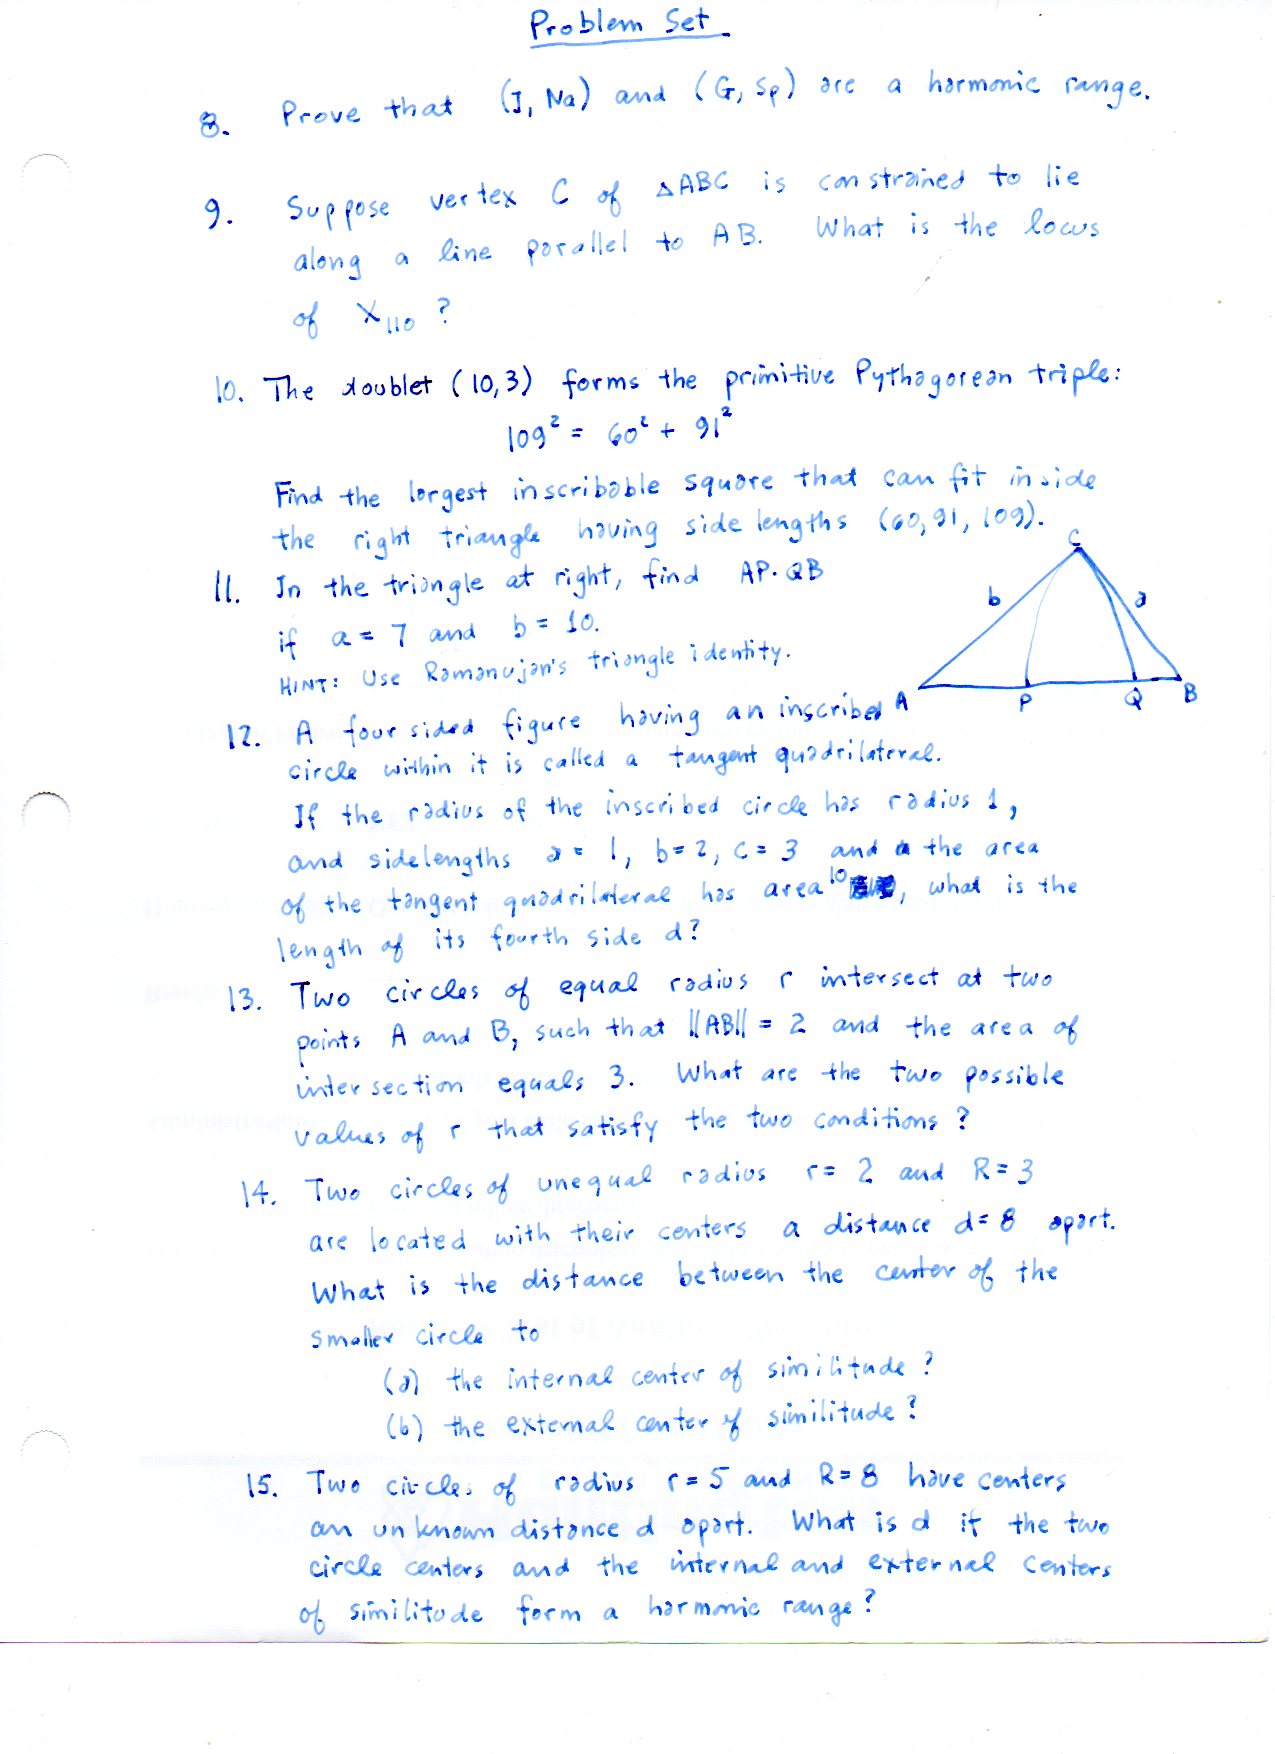 Problem Set
8. Prove that (I, Na) and (G, Sp) are a harmonic range.
9. Suppose vertex C of △ABC is constrained to lie
along a line parallel to AB. What is the locus
of X₁₁₀ ?
10. The doublet (10,3) forms the primitive Pythagorean triple:
109² = 60² + 91²
Find the largest inscribable square that can fit inside
the right triangle having side lengths (60, 91, 109).
11. In the triangle at right, find AP·QB
if a = 7 and b = 10.
HINT: Use Ramanujan's triangle identity.
C
b
a
A
P
Q
B
12. A four sided figure having an inscribed
circle within it is called a tangent quadrilateral.
If the radius of the inscribed circle has radius 1,
and sidelengths a = 1, b = 2, c = 3 and the area
of the tangent quadrilateral has area 10, what is the
length of its fourth side d?
13. Two circles of equal radius r intersect at two
points A and B, such that ||AB|| = 2 and the area of
intersection equals 3. What are the two possible
values of r that satisfy the two conditions ?
14. Two circles of unequal radius r = 2 and R = 3
are located with their centers a distance d = 8 apart.
What is the distance between the center of the
smaller circle to
(a) the internal center of similitude ?
(b) the external center of similitude ?
15. Two circles of radius r = 5 and R = 8 have centers
an unknown distance d apart. What is d if the two
circle centers and the internal and external centers
of similitude form a harmonic range ?